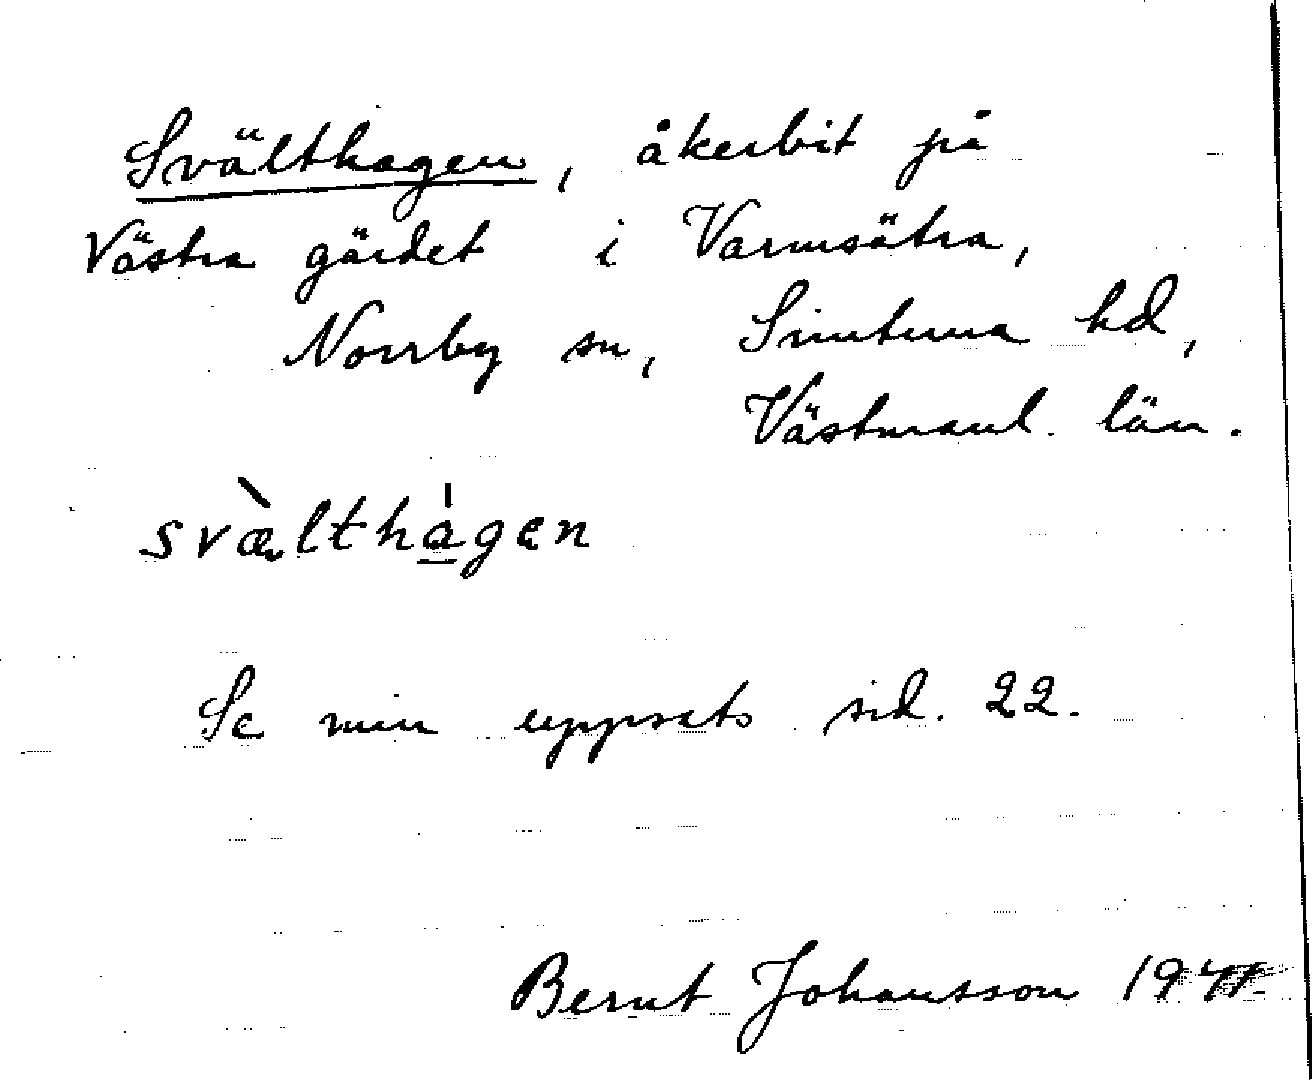 Svälthagen, åkerbit på
Västra gärdet i Varmsätra,
Norrby sn, Simtuna hd,
Västmanl. län.
svæ̀lthágen
Se min uppsats sid. 22.
Bernt Johansson 1941